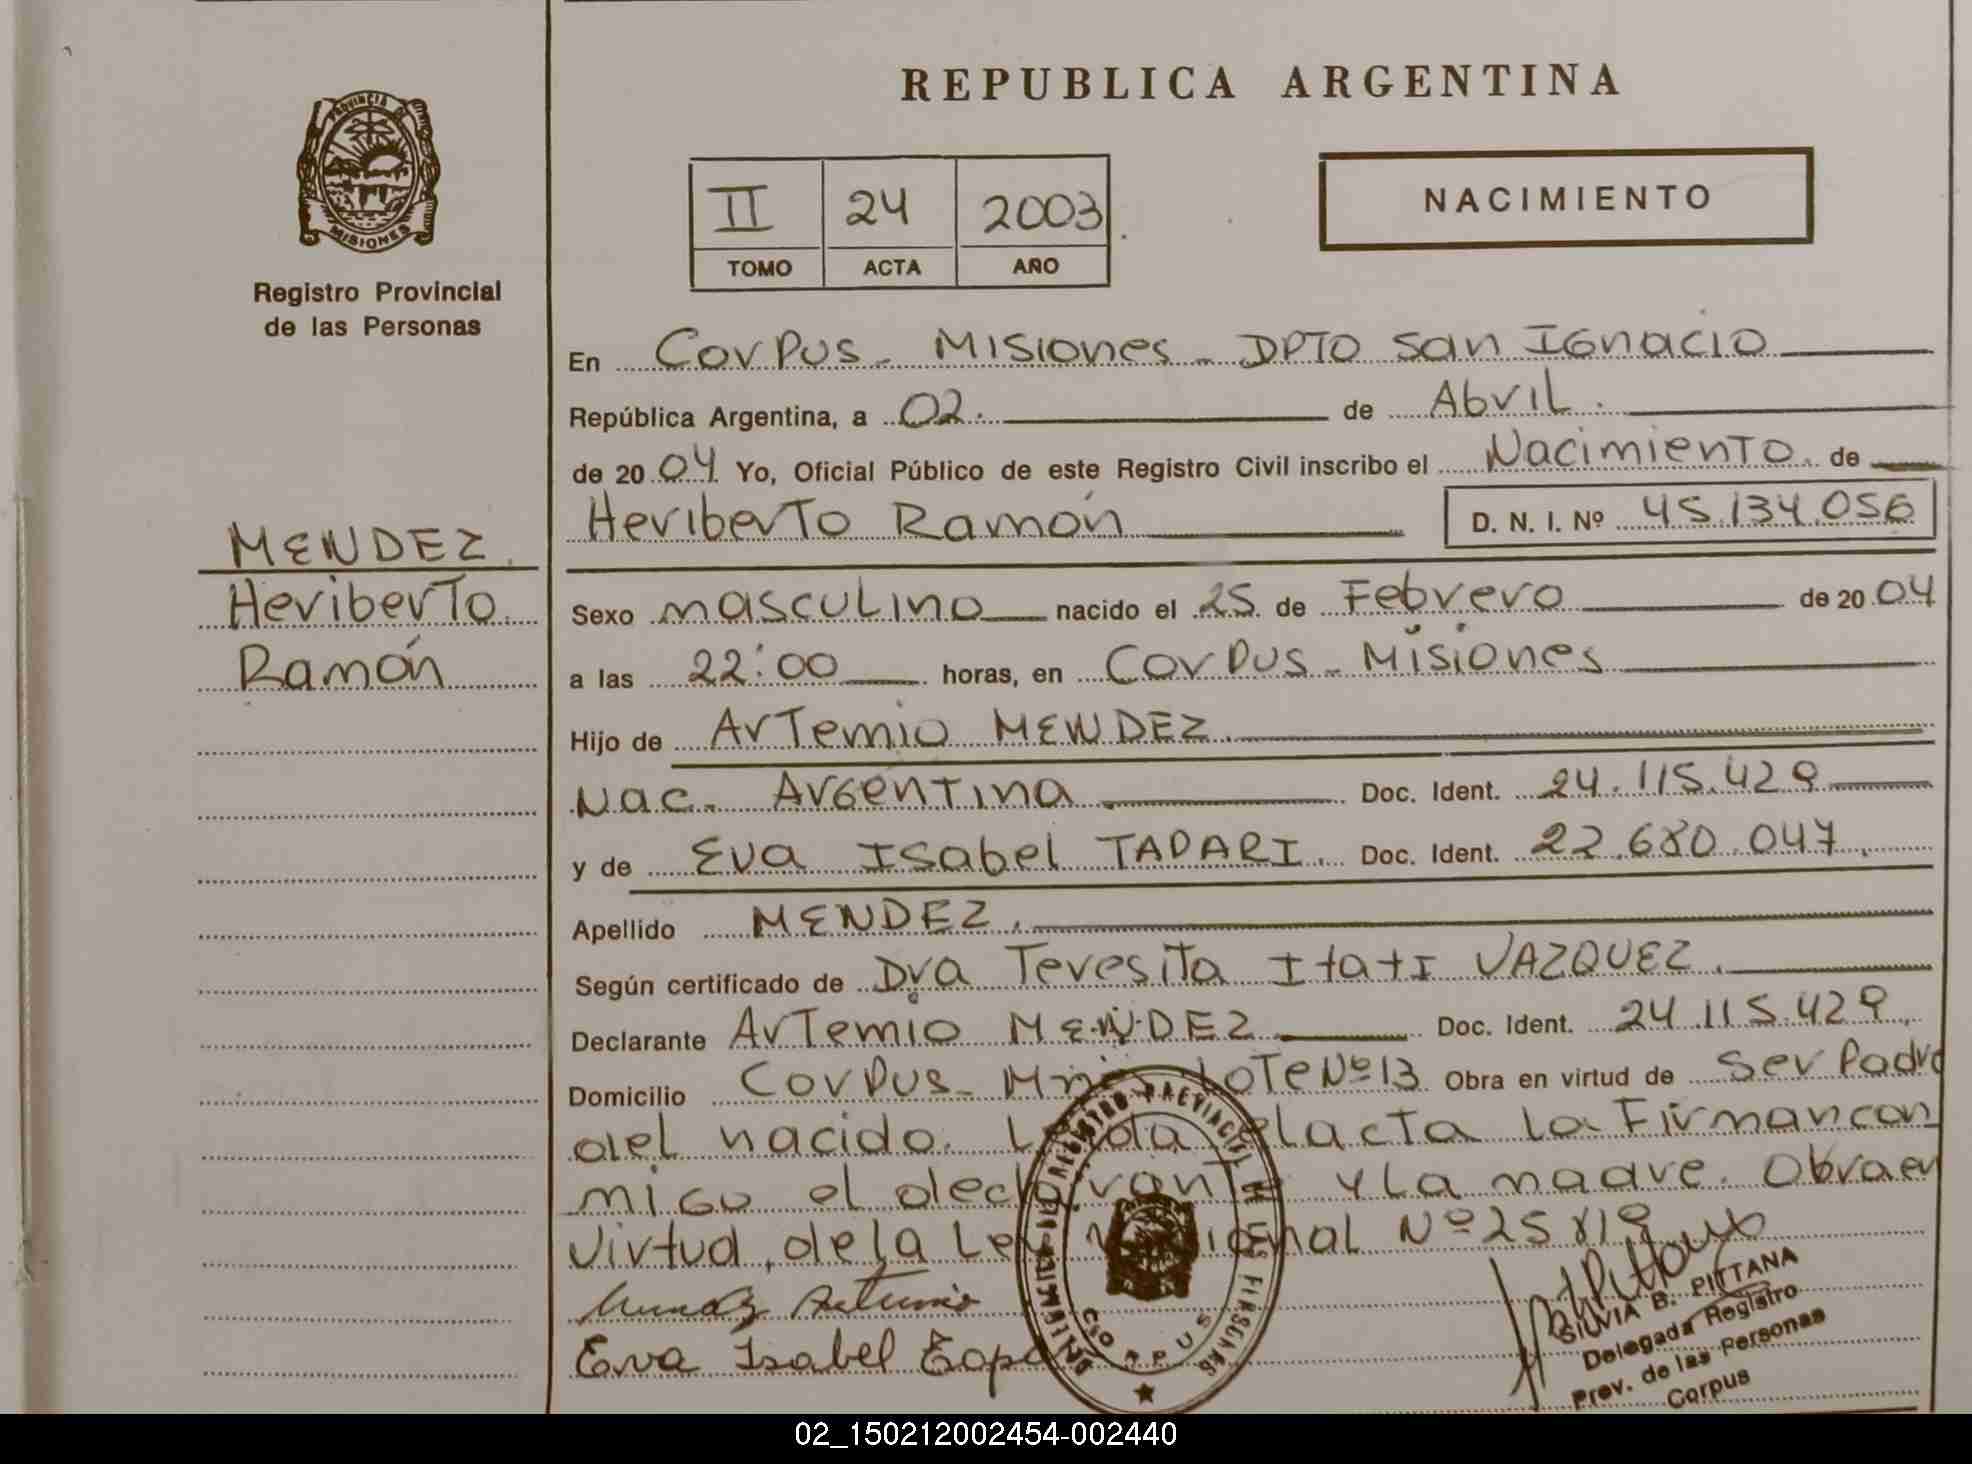 REPUBLICA ARGENTINA
PROVINCIA DE
MISIONES
Registro Provincial
de las Personas
II 24 2003
TOMO ACTA AÑO
NACIMIENTO
MENDEZ.
Heriberto
Ramón
En Corpus - Misiones - DPTO San Ignacio
República Argentina, a 02. de Abril.
de 20 04 Yo, Oficial Público de este Registro Civil inscribo el Nacimiento. de
Heriberto Ramón D. N. I. Nº 45.134.056
Sexo masculino nacido el 25 de Febrero de 20 04
a las 22:00 horas, en Corpus - Misiones
Hijo de Artemio MENDEZ.
Nac. Argentina Doc. Ident. 24.115.429
y de Eva Isabel TAPARI. Doc. Ident. 22.680.047.
Apellido MENDEZ.
Según certificado de Dra Teresita Itati VAZQUEZ.
Declarante Artemio MENDEZ Doc. Ident. 24.115.429.
Domicilio Corpus - Mnes Lote Nº 13 Obra en virtud de ser Padre
del nacido. Leida el acta la Firman con
migo el declarante y la madre. Obra en
virtud, de la Ley Nº 25 819
Eva Isabel
REGISTRO PROVINCIAL DE
CORPUS
SILVIA B. PITTANA
Delegada Registro
Prov. de las Personas
Corpus
02_150212002454-002440